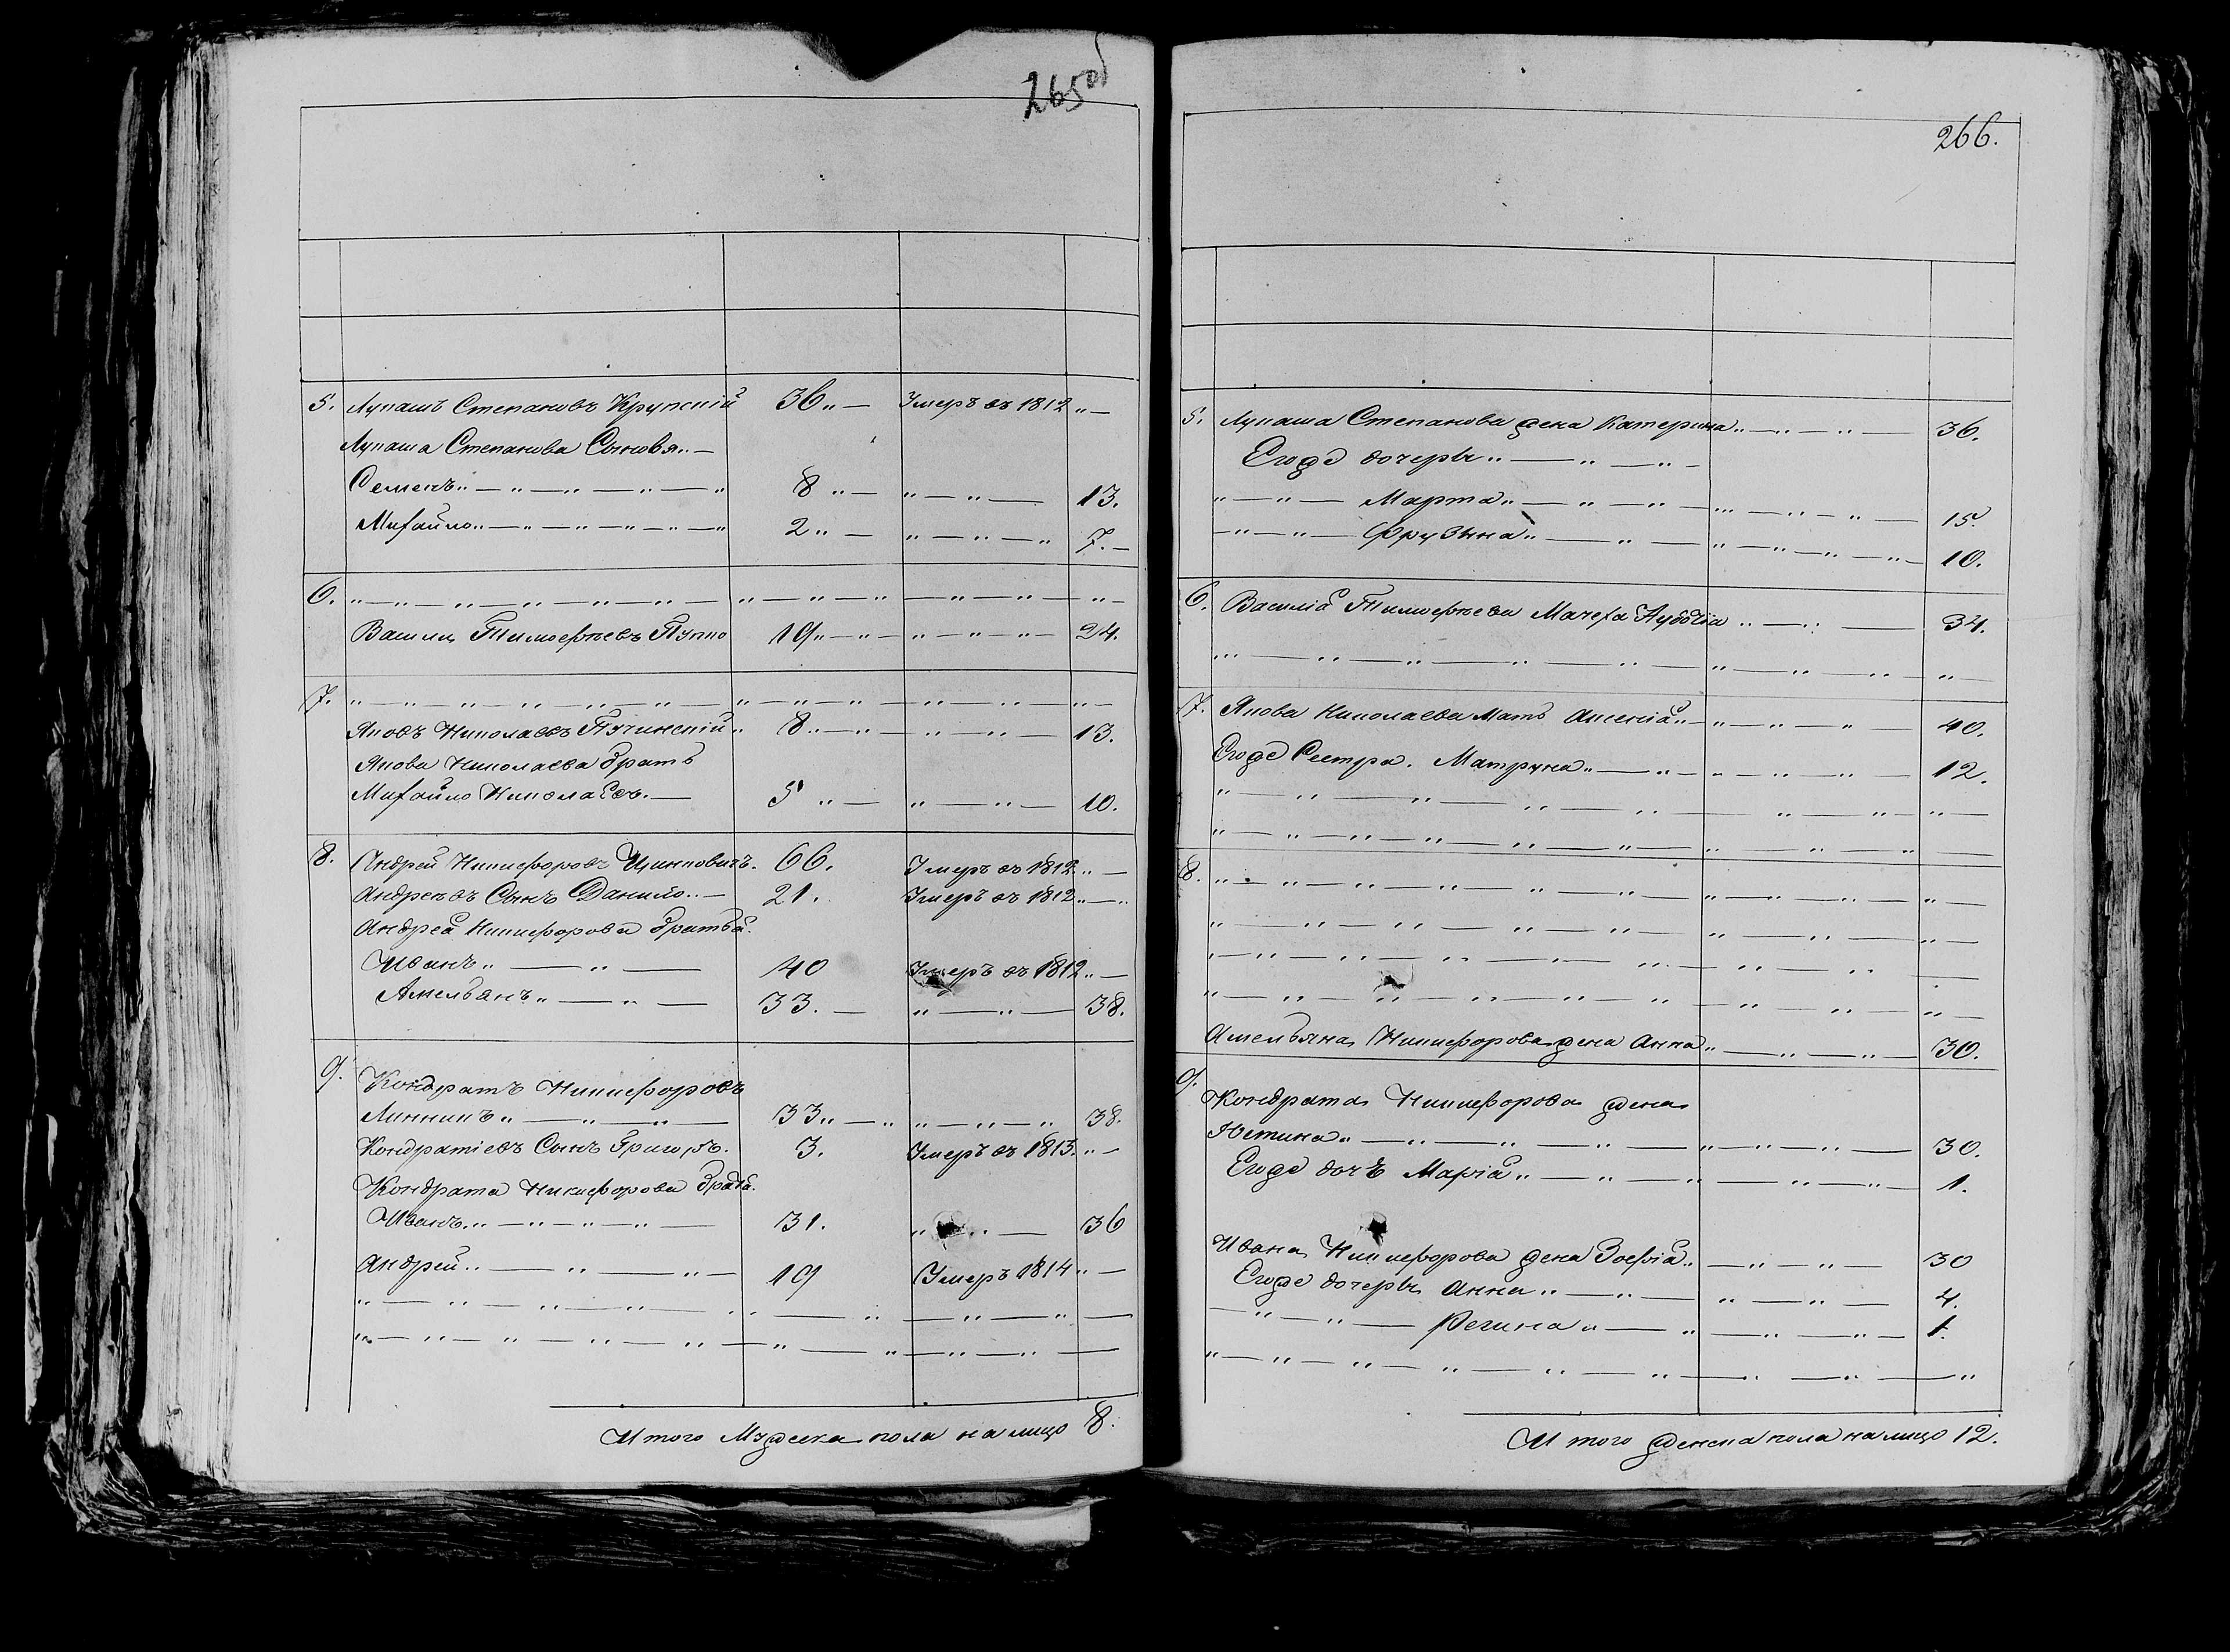 265об
5. Лукашъ Степановъ Крупскій 36 Умеръ въ 1812
Лукаша Степанова Сыновья
Семенъ 8 13.
Михайло 2 7.
6.
Василій Тимофѣевъ 19 24.
7.
Яковъ Николаевъ 8 13.
Якова Николаева братъ
Михайло Николаевъ 5 10.
8. Андрей Никифоровъ 66. Умеръ въ 1812
Андреевъ Сынъ Данило 21. Умеръ въ 1812
Андрея Никифорова братья
Иванъ 40 Умеръ въ 1812
Амельянъ 33. 38.
9. Кондратъ Никифоровъ
33 38.
Кондратіевъ Сынъ Григоръ. 3. Умеръ въ 1813.
Кондрата Никифорова братья
Иванъ 31. 36
Андрей 19 Умеръ 1814
И того Мужеска пола на лицо 8.
266.
5. Лукаша Степанова жена Катерина 36.
Егоже дочеры
Марта 15.
Фрузына 10.
6. Василія Тимофѣева Мачеха 34.
7. Якова Николаева Мать Аксенія 40.
Егоже Сестра. Матруна 12.
8.
Амельяна Никифорова жена Анна 30.
9. Кондрата Никифорова жена
Юстина 30.
Егоже дочъ Марія 1.
Ивана Никифорова жена Зофія 30
Егоже дочеры Анна 4.
Регина 1.
И того женска пола на лицо 12.